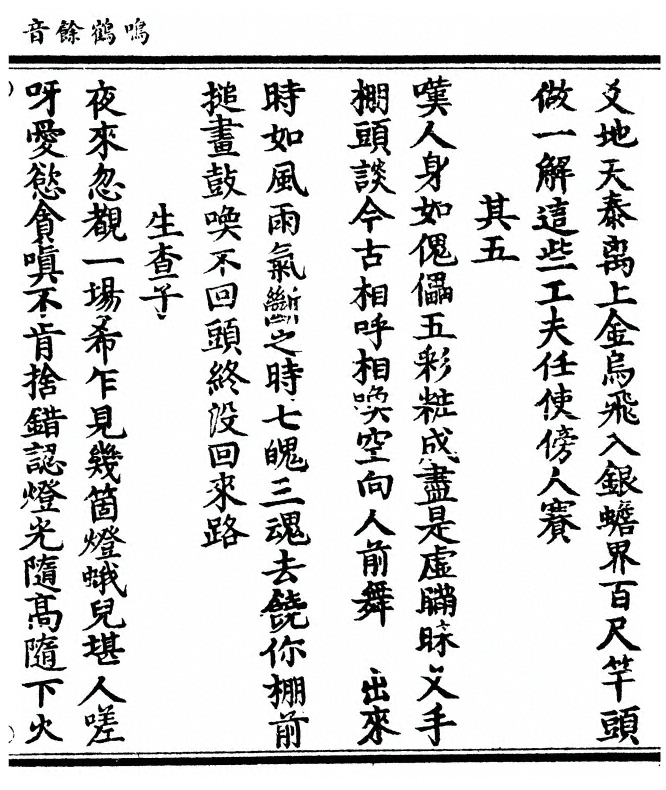 鳴鶴餘音
爻地天泰离上金烏飛入銀蟾界百尺竿頭
做一解這些工夫任使傍人賽
其五
嘆人身如傀儡五彩粧成盡是虛瞞眛叉手
棚頭談今古相呼相喚空向人前舞 出來
時如風雨氣斷之時七魄三魂去饒你棚前
搥畫鼓喚不回頭終没回來路
生查子
夜來忽覩一場希乍見幾箇燈蛾兒堪人嗟
呀愛慾貪嗔不肯捨錯認燈光隨髙隨下火